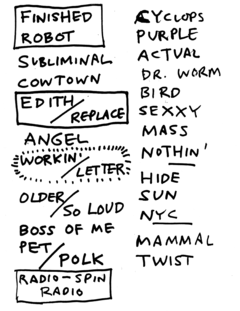 FINISHED
ROBOT
SUBLIMINAL
COWTOWN
EDITH/
REPLACE
ANGEL
WORKIN'/
LETTER
OLDER/
SO LOUD
BOSS OF ME
PET/
POLK
RADIO-SPIN
RADIO
CYCLOPS
PURPLE
ACTUAL
DR. WORM
BIRD
SEXXY
MASS
NOTHIN'
HIDE
SUN
NYC
MAMMAL
TWIST